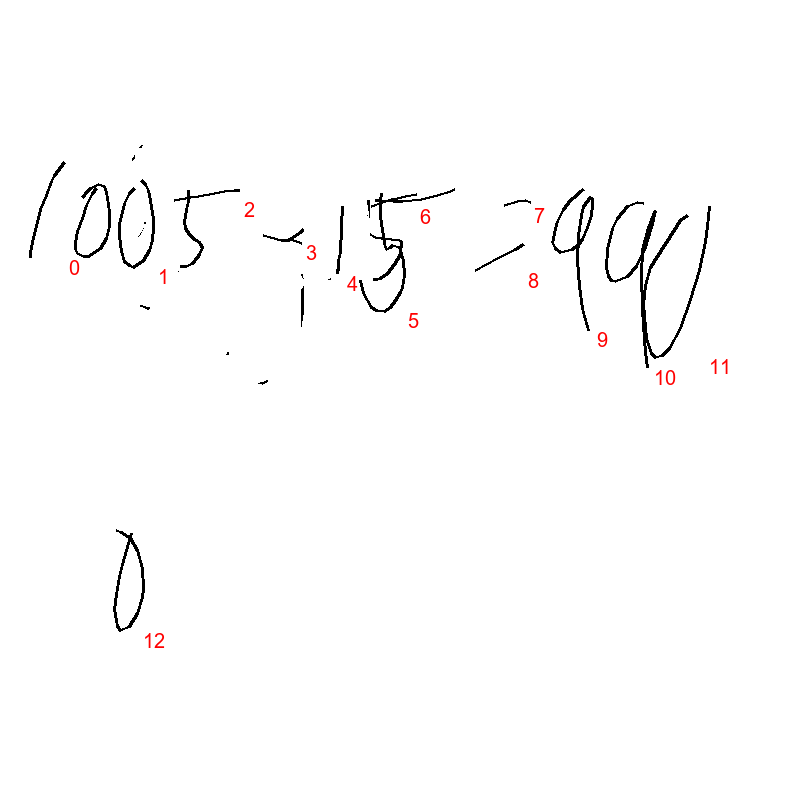 1005-15=990
0
0 1 2 3 4 5 6 7 8 9 10 11 12